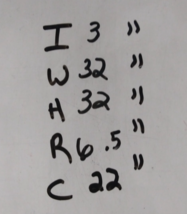 I 3 "
W 32 "
H 32 "
R 6.5 "
C 22 "